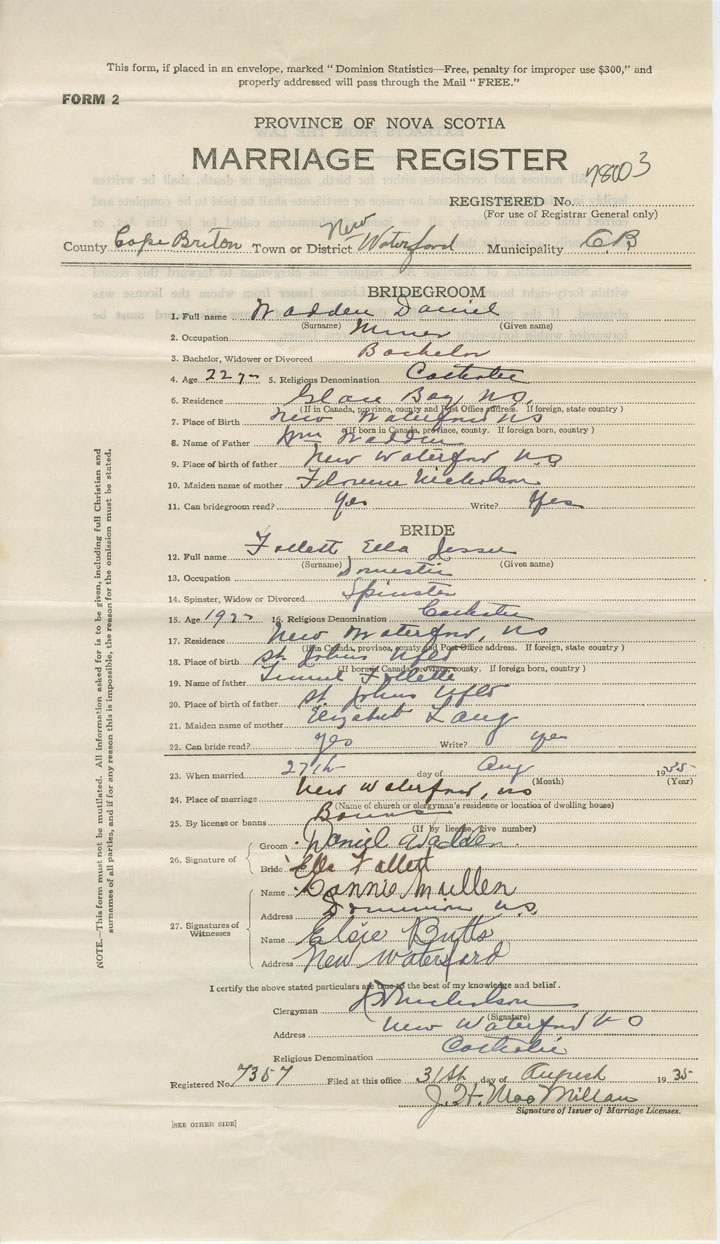 This form, if placed in an envelope, marked "Dominion Statistics—Free, penalty for improper use $300," and
properly addressed will pass through the Mail "FREE."
FORM 2
PROVINCE OF NOVA SCOTIA
MARRIAGE REGISTER
REGISTERED No. 78003
(For use of Registrar General only)
County Cape Briton Town or District New Waterford Municipality C.B
BRIDEGROOM
1. Full name Wadden Daniel
(Surname) (Given name)
2. Occupation Miner
3. Bachelor, Widower or Divorced Bachelor
4. Age 22 5. Religious Denomination Catholic
6. Residence Glace Bay NS.
(If in Canada, province, county and Post Office address. If foreign, state country)
7. Place of Birth New Waterford NS
(If born in Canada, province, county. If foreign born, country)
8. Name of Father Wm Wadden
9. Place of birth of father New Waterford N.S
10. Maiden name of mother Florence Nicholson
11. Can bridegroom read? Yes Write? Yes
BRIDE
12. Full name Follett Ella Jessie
(Surname) (Given name)
13. Occupation Domestic
14. Spinster, Widow or Divorced Spinster
15. Age 19 16. Religious Denomination Catholic
17. Residence New Waterford, NS
(If in Canada, province, county and Post Office address. If foreign, state country)
18. Place of birth St Johns Nfld
(If born of Canada, province, county. If foreign born, country)
19. Name of father Follette
20. Place of birth of father St Johns Nfld
21. Maiden name of mother Elizabeth Lang
22. Can bride read? Yes Write? yes
23. When married 27th day of Aug 1935
(Month) (Year)
24. Place of marriage New Waterford, NS
(Name of church or clergyman's residence or location of dwelling house)
25. By license or banns Banns
(If by license, give number)
26. Signature of
Groom Daniel Wadden
Bride Ella Follett
27. Signatures of Witnesses
Name Dannie Mullen
Address Dominion N.S.
Name Elsie Butts
Address New Waterford
I certify the above stated particulars are true to the best of my knowledge and belief.
Clergyman Nicholson
(Signature)
Address New Waterford NS
Religious Denomination Catholic
Registered No. 7357 Filed at this office 31st day of August 1935
J. H. MacMillan
Signature of Issuer of Marriage Licenses.
[SEE OTHER SIDE]
NOTE.—This form must not be mutilated. All information asked for is to be given, including full Christian and
surnames of all parties, and if for any reason this is impossible, the reason for the omission must be stated.